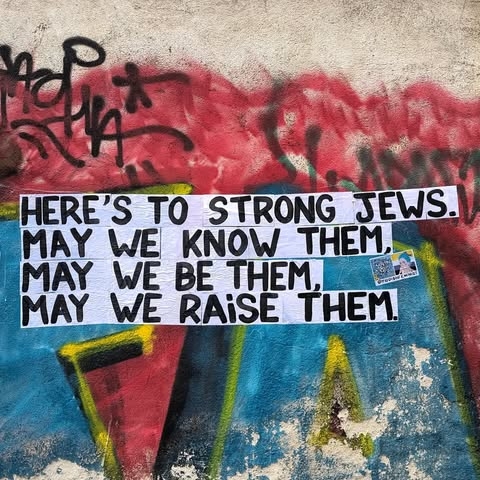 HERE'S TO STRONG JEWS.
MAY WE KNOW THEM,
MAY WE BE THEM,
MAY WE RAiSE THEM.